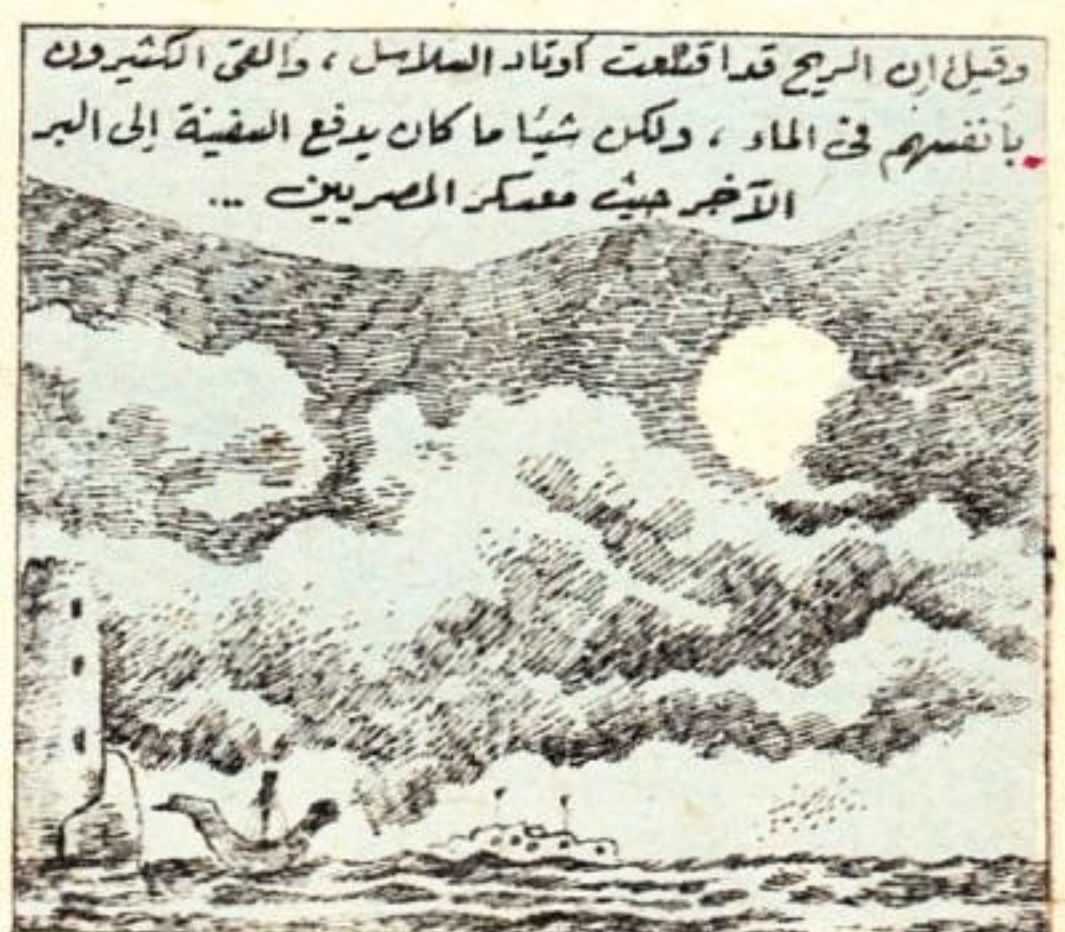 وقيل إن الريح قد اقتلعت أوتاد السلاسل ، وألقى الكثيرون
بأنفسهم فى الماء ، ولكن شيئا ما كان يدفع السفينة إلى البر
الآخر حيث معسكر المصريين ...